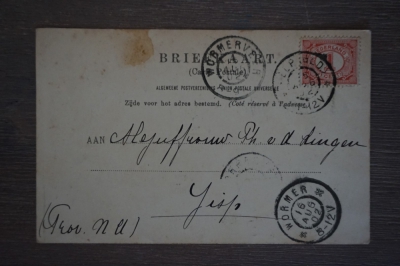 BRIEFKAART.
(Carte Postale)
ALGEMEENE POSTVEREENIGING UNION POSTALE UNIVERSELLE
Zijde voor het adres bestemd. (Côté réservé à l'adresse)
AAN Mejuffrouw Ph v d
Jisp
(Prov. NH)
WORMERVEER
WORMER
16
AUG
02
M-12V